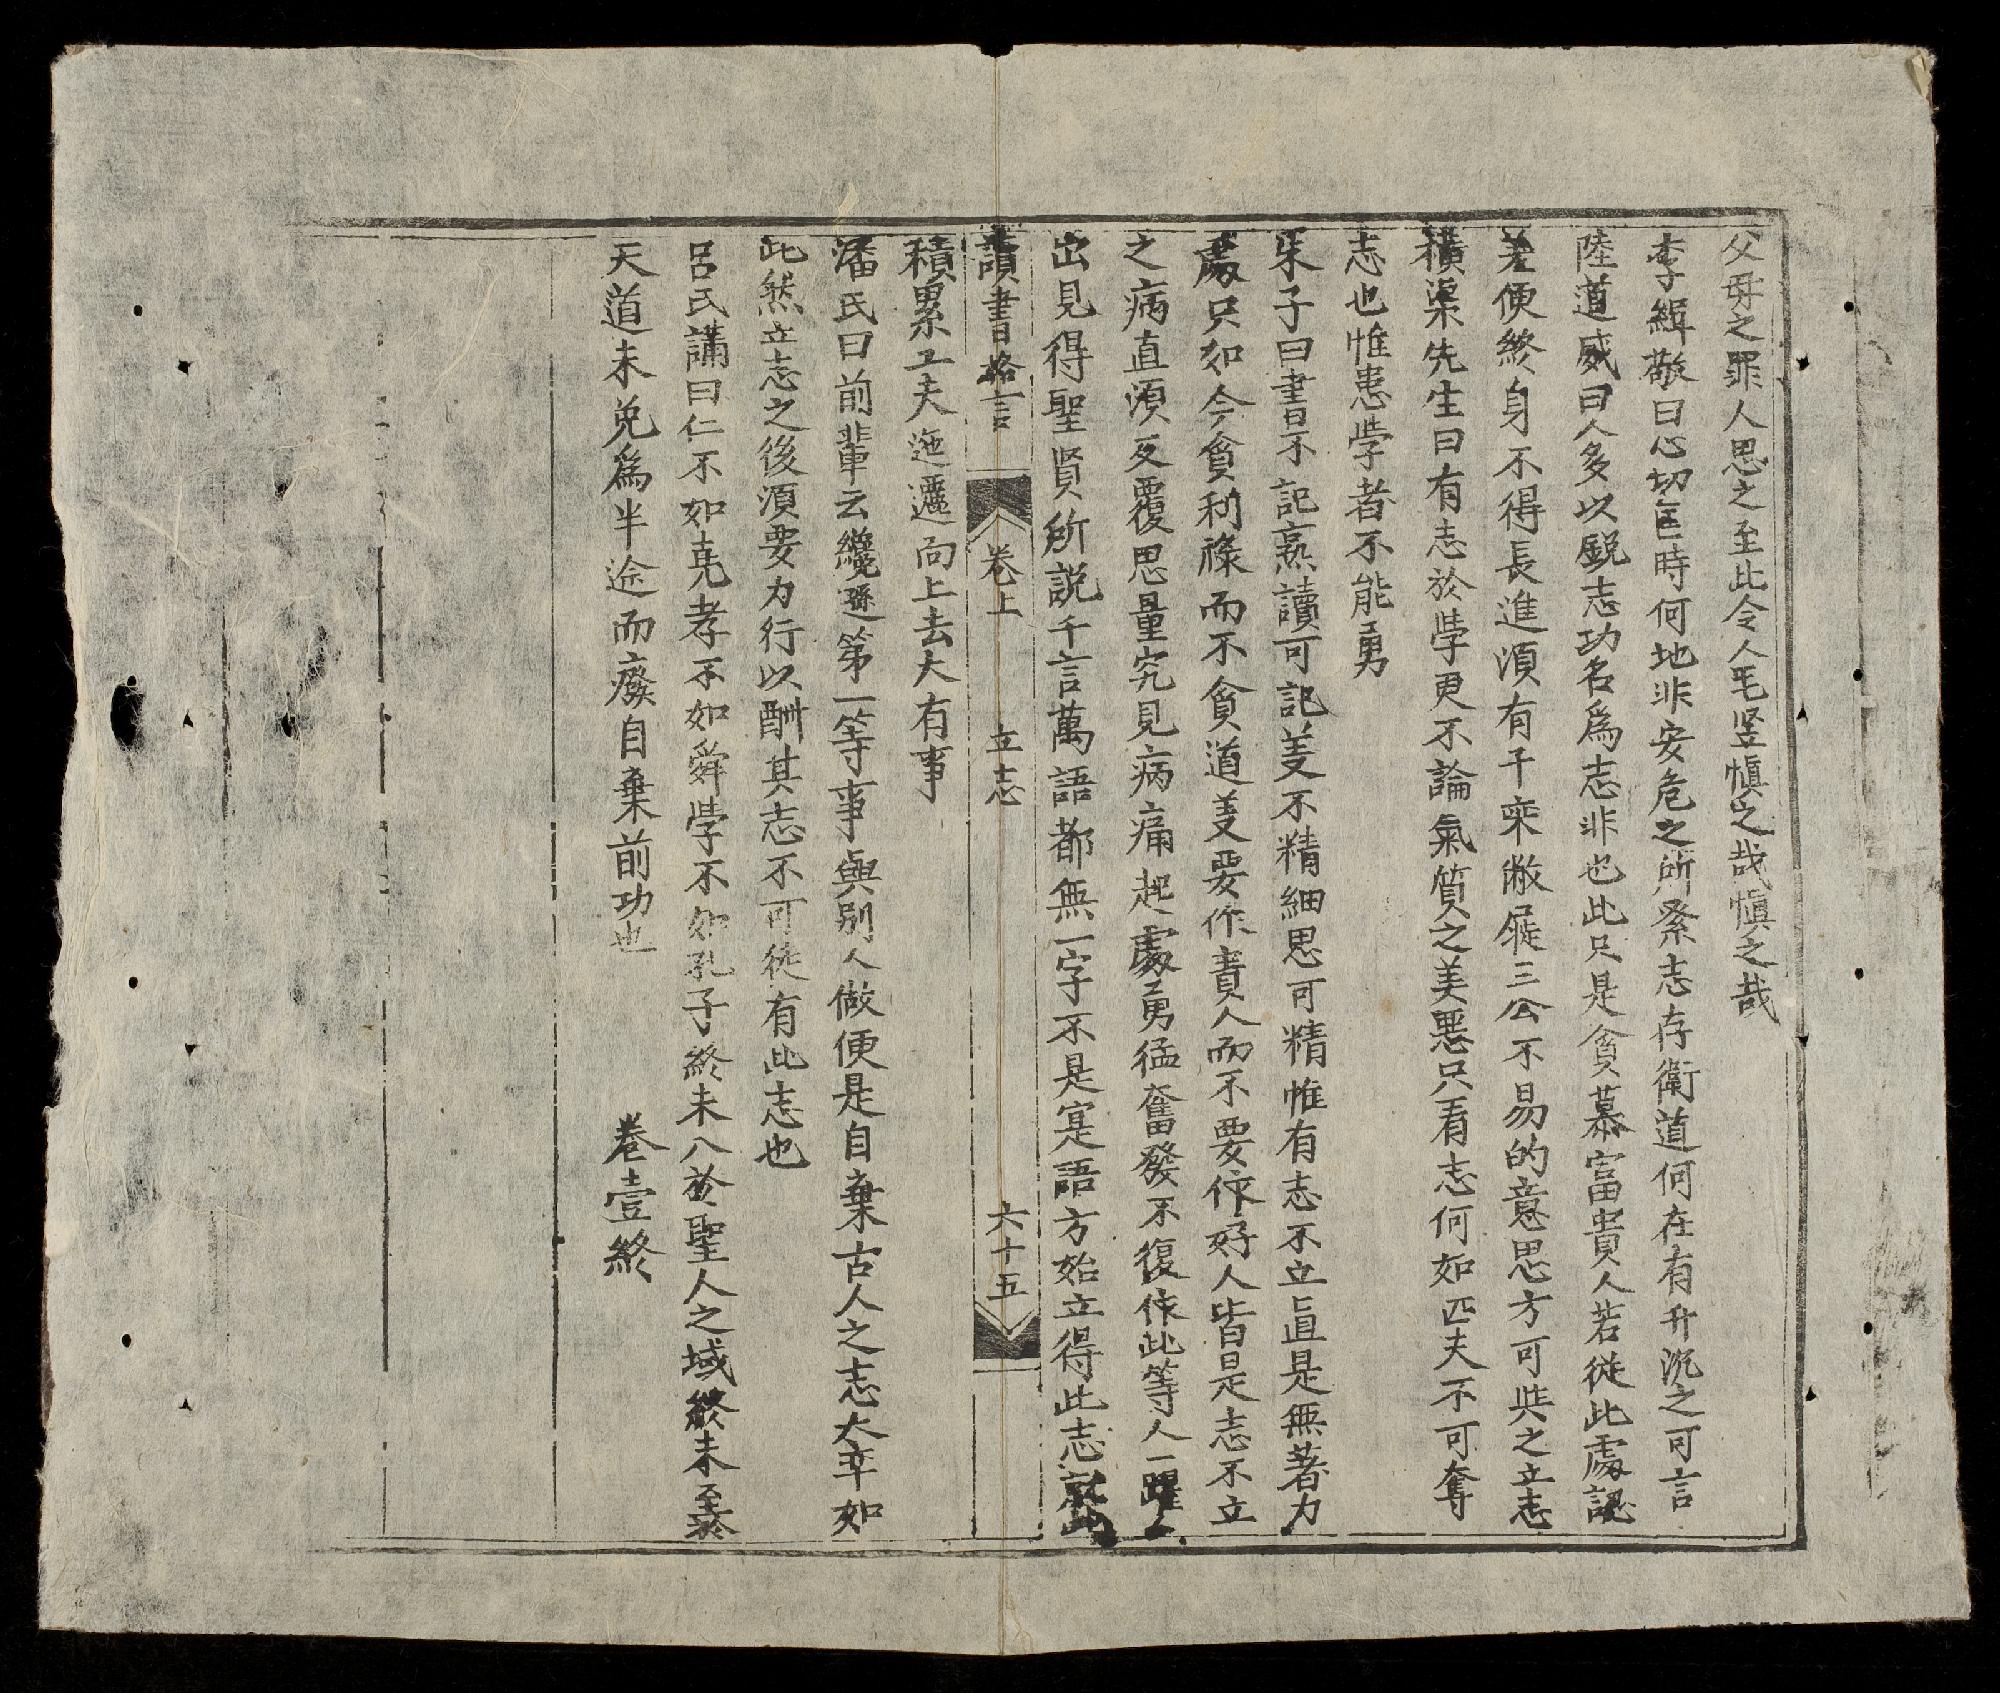 父母之罪人思之至此令人毛竖慎之哉慎之哉
李緝敬曰心切匡時何地非安危之所系志存衛道何在有升沉之可言
陸道威曰人多以銳志功名爲志非也此只是貪慕富貴人若從此處認
差便終身不得長進須有千乘敝屣三公不易的意思方可與之立志
橫渠先生曰有志於學更不論氣質之美惡只看志何如匹夫不可奪
志也惟患學者不能勇
朱子曰書不記熟讀可記義不精細思可精惟有志不立直是無著力
處只如今貪利祿而不貪道義要作貴人而不要作好人皆是志不立
之病直須反覆思量究見病痛起處勇猛奮發不復作此等人一躍
出見得聖賢所説千言萬語都無一字不是寔語方始立得此志就此
讀書格言 卷上 立志 六十五
積累工夫迤邐向上去大有事
潘氏曰前輩云纔遜第一等事與别人做便是自棄古人之志大率如
此然立志之後須要力行以酬其志不可徒有此志也
呂氏譾曰仁不如堯孝不如舜學不如孔子終未入於聖人之域終未至於
天道未免爲半途而廢自棄前功也 卷壹終